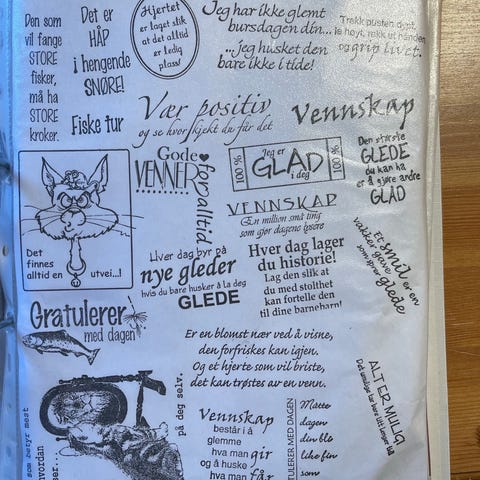 Den som
vil fange
STORE
fisker,
må ha
STORE
kroker.
Det er
HÅP
i hengende
SNØRE!
Fiske tur
Hjertet
er laget slik
at det alltid
er ledig
plass!
Jeg har ikke glemt
bursdagen din...
..Jeg husket den
bare ikke i tide!
Trekk pusten dypt,
le høyt, rekk ut hånden
og grip livet.
Vær positiv
og se hvor kjekt du får det
Vennskap
Gode
VENNER
for alltid
100 %
Jeg er
GLAD
i deg
100 %
Den største
GLEDE
du kan ha
er å gjøre andre
GLAD
Det
finnes
alltid en
utvei...!
VENNSKAP
En million små ting
som gjør dagene lysere
Hver dag byr på
nye gleder
hvis du bare husker å la deg
GLEDE
Hver dag lager
du historie!
Lag den slik at
du med stolthet
kan fortelle den
til dine barnebarn!
Et
smil er en
vakker gave
som sprer
glede
Gratulerer
med dagen
Er en blomst nær ved å visne,
den forfriskes kan igjen.
Og et hjerte som vil briste,
det kan trøstes av en venn.
ALT ER MULIG
Det umulige tar bare litt lenger tid
som betyr mest
hvordan
på deg selv.
Vennskap
består i å
glemme
hva man gir
og å huske
hva man får
GRATULERER MED DAGEN
Måtte
dagen
din bli
like fin
som